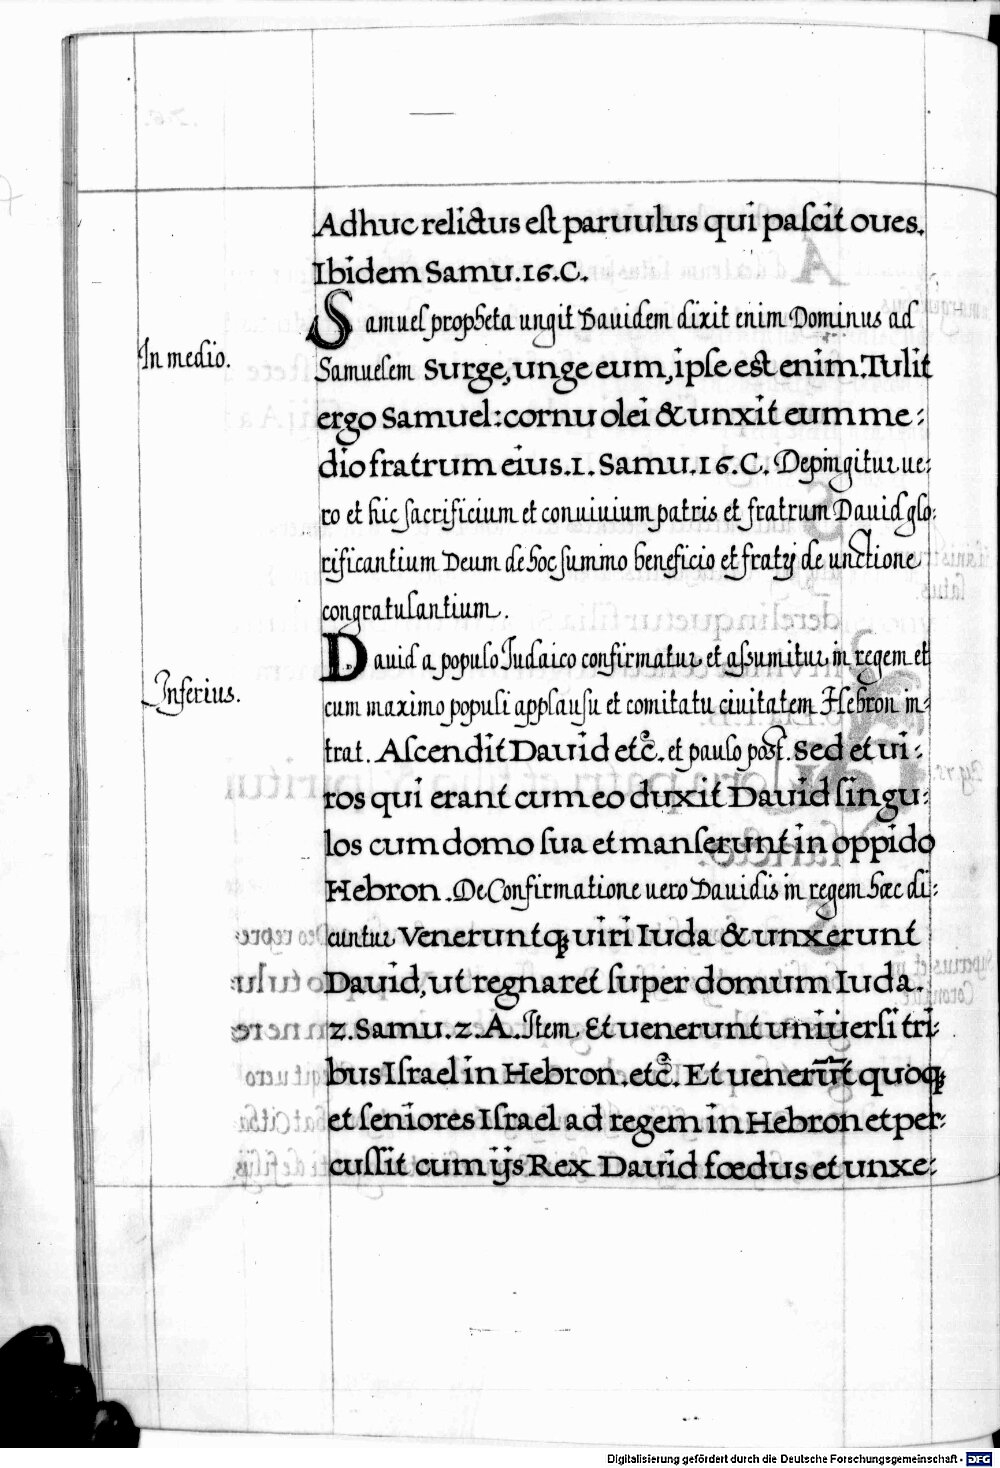 Adhuc relictus est paruulus qui pascit oues.
Ibidem Samu. 16. C.
Samuel propheta ungit Dauidem dixit enim Dominus ad
In medio.
Samuelem Surge, unge eum, ipse est enim. Tulit
ergo Samuel: cornu olei & unxit eum me:
dio fratrum eius. 1. Samu. 16. C. Depingitur ue:
ro et hic sacrificium et conuiuium patris et fratrum Dauid glo:
rificantium Deum de hoc summo beneficio et fratri de unctione
congratulantium.
Dauid a populo Judaico confirmatur et assumitur in regem et
Inferius.
cum maximo populi applausu et comitatu ciuitatem Hebron in:
trat. Ascendit Dauid etc. et paulo post. Sed et ui:
ros qui erant cum eo duxit Dauid singu:
los cum domo sua et manserunt in oppido
Hebron. De Confirmatione uero Dauidis in regem hæc di:
cuntur Veneruntq; uiri Iuda & unxerunt
Dauid, ut regnaret super domum Iuda.
2. Samu. 2. A. Item. Et uenerunt uniuersi tri:
bus Israel in Hebron. etc. Et uenerūt quoq;
et seniores Israel ad regem in Hebron et per:
cussit cum ijs Rex Dauid fœdus et unxe:
Digitalisierung gefördert durch die Deutsche Forschungsgemeinschaft - DFG